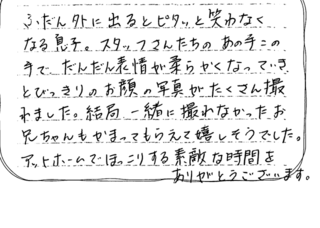 ふだん外に出るとピタッと笑わなく
なる息子。スタッフさんたちのあの手この
手でだんだん表情が柔らかくなっていき
とびっきりのお顔の写真がたくさん撮
れました。結局一緒に撮れなかったお
兄ちゃんもかまってもらえて嬉しそうでした。
アットホームでほっこりする素敵な時間を
ありがとうございます。